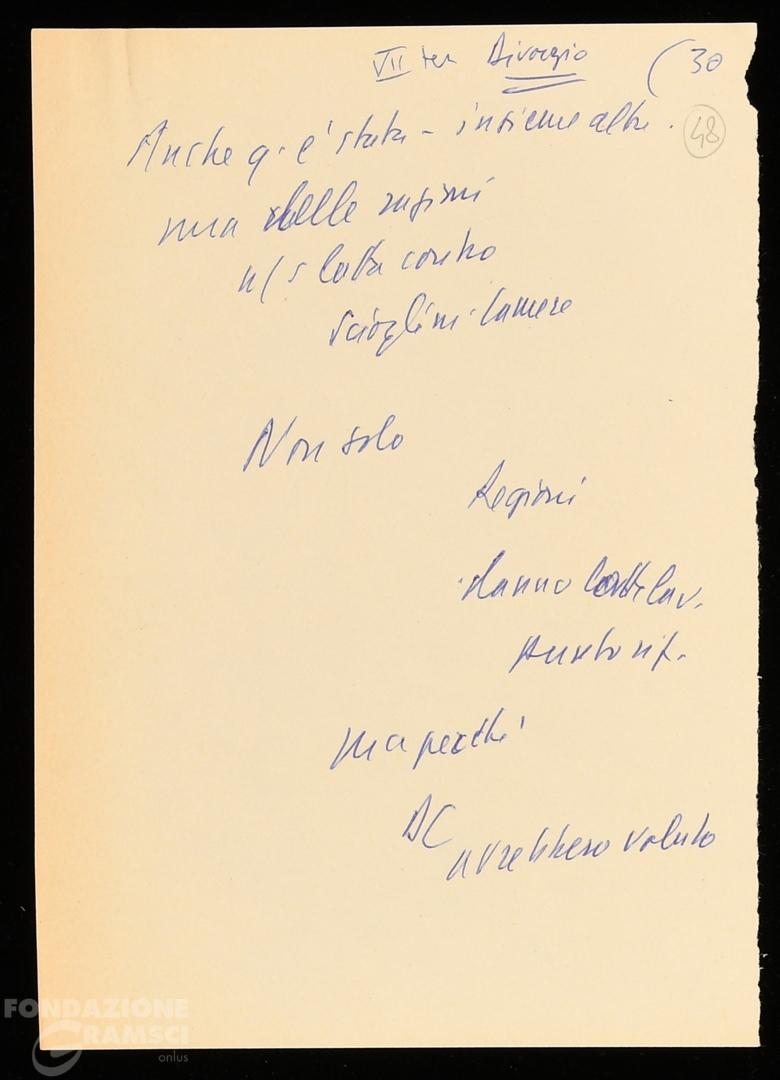 VII ter Divorzio (30
48
Anche q. è stata - insieme altre.
una delle ragioni
n/s lotta contro
scioglim. Camere
Non solo
Regioni
danno lavor.
ma perché
DC
avrebbero voluto
FONDAZIONE
GRAMSCI
onlus